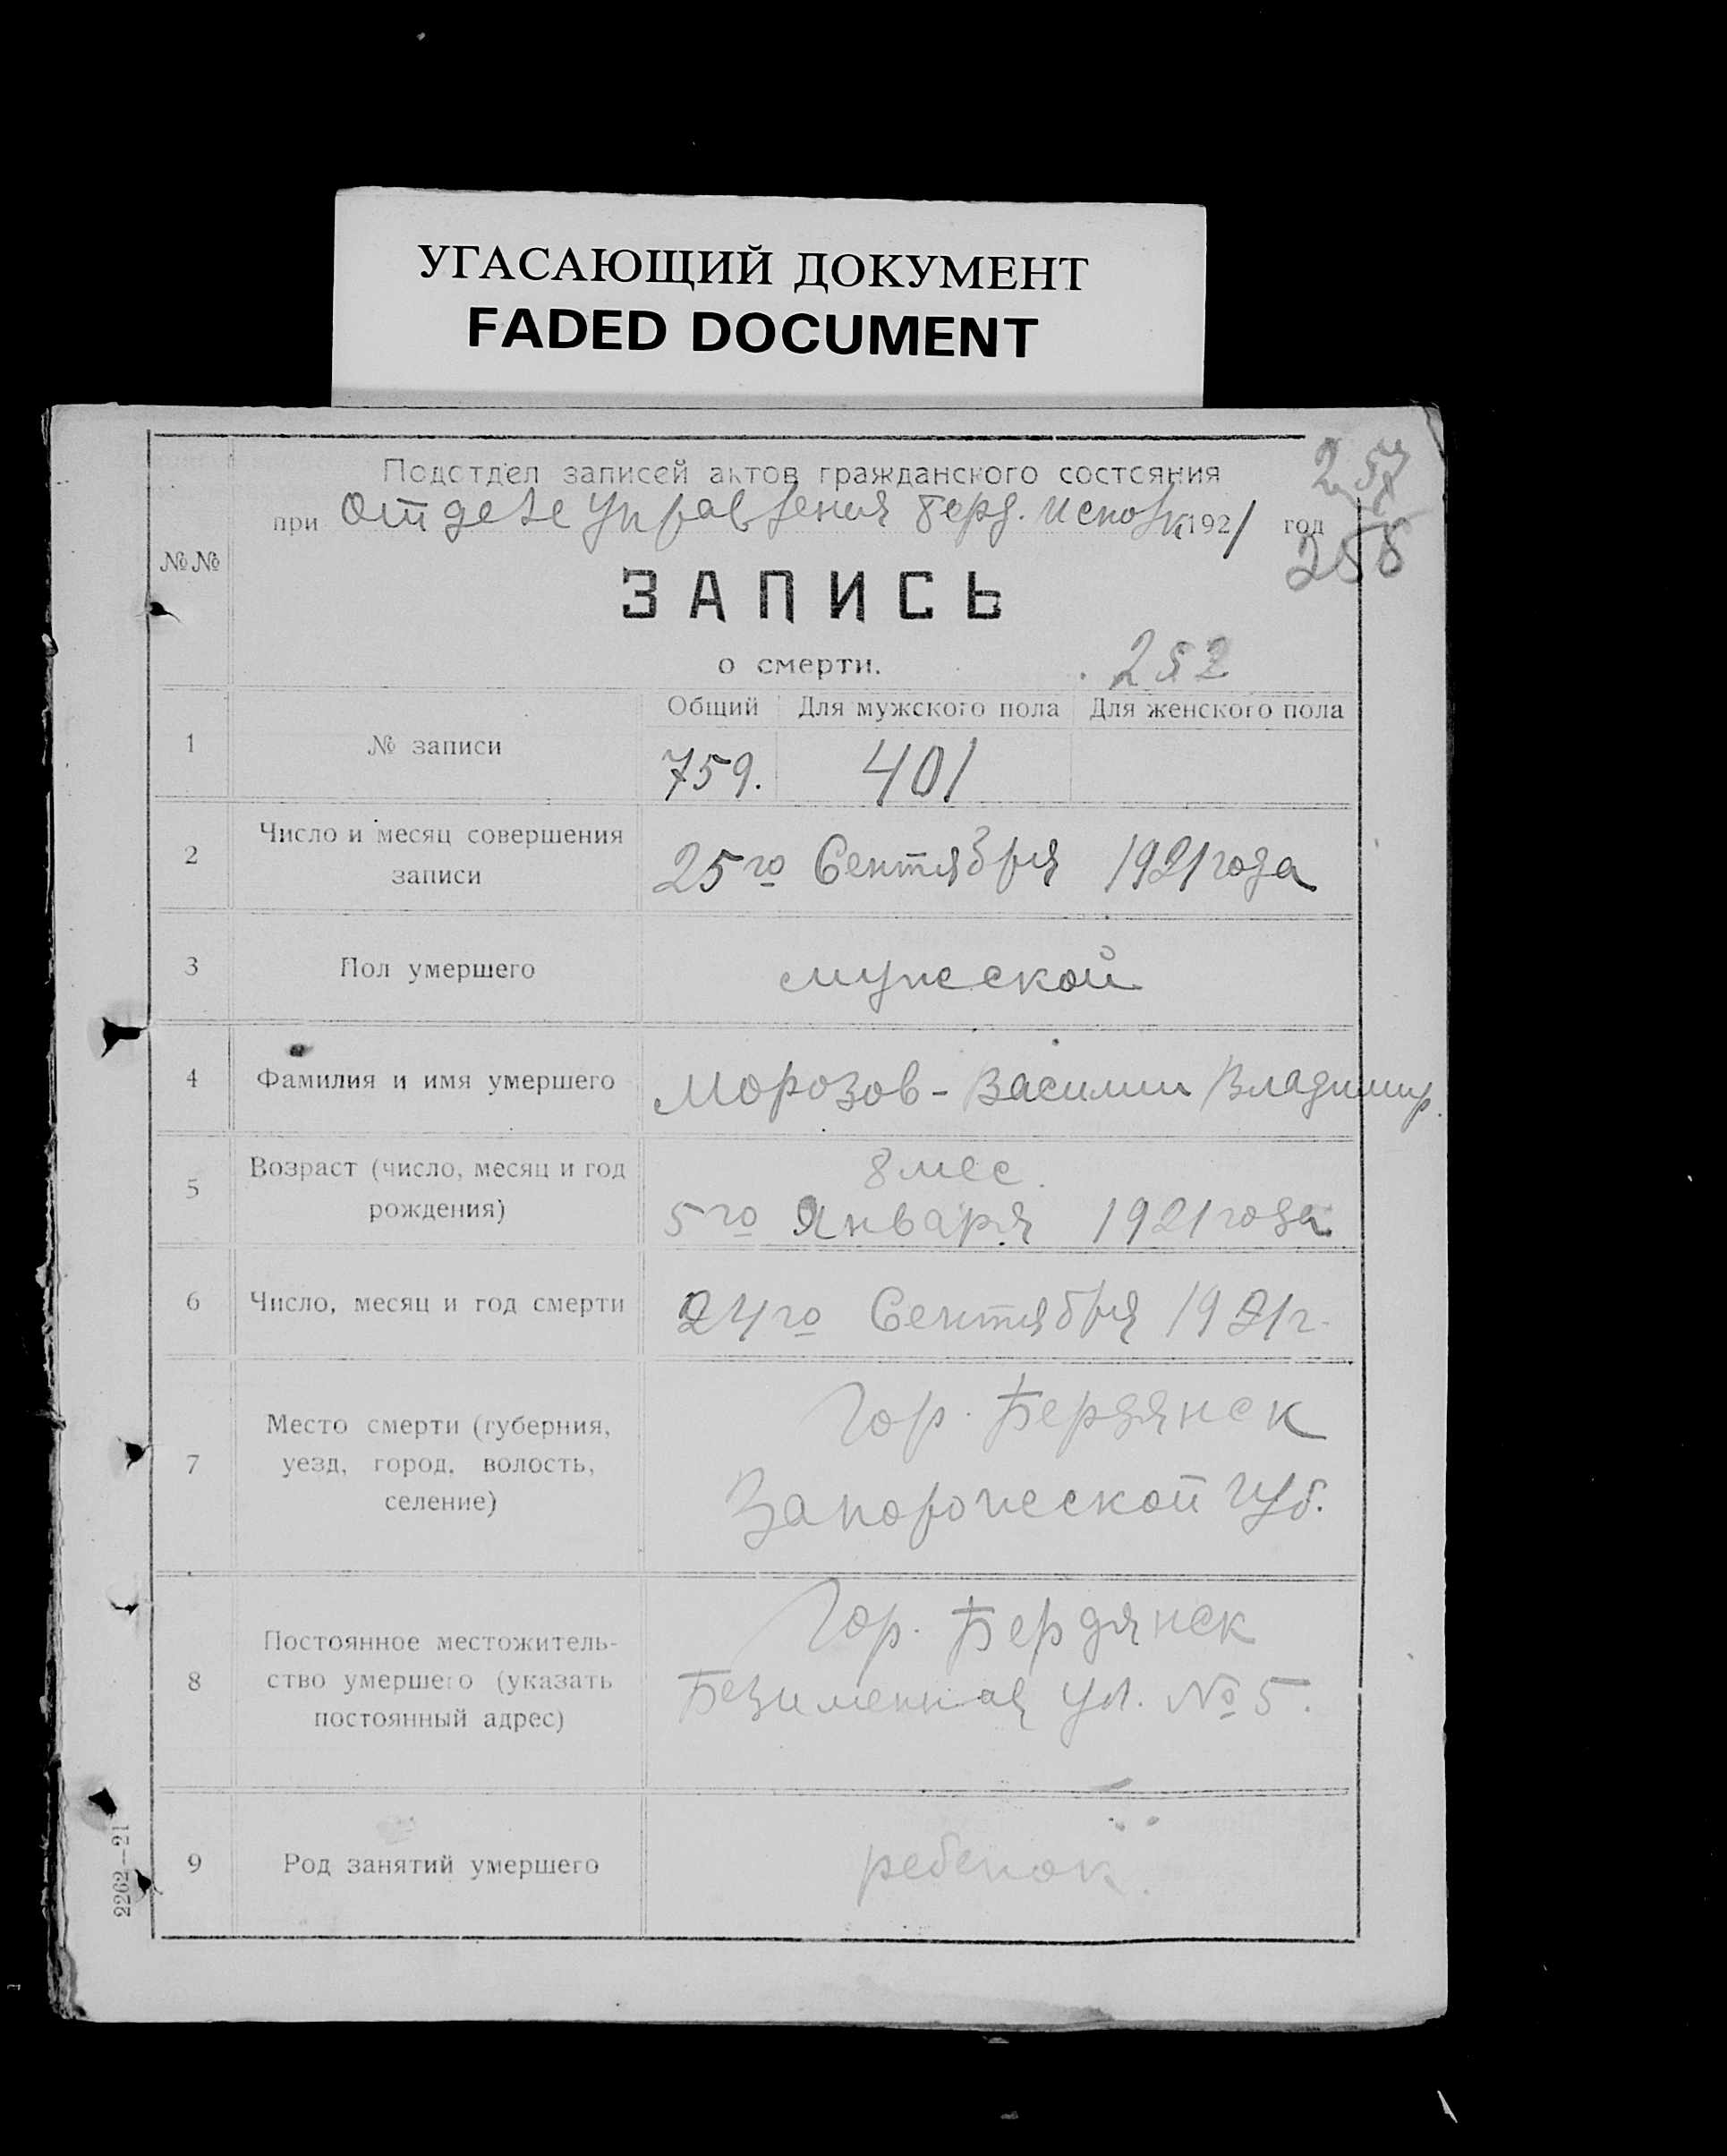 УГАСАЮЩИЙ ДОКУМЕНТ
FADED DOCUMENT
257
Подотдел записей актов гражданского состояния
при Отделе Управления Берд. Исполк. 1921 год
258
№№
ЗАПИСЬ
о смерти.
252
Общий Для мужского пола Для женского пола
1 № записи 759. 401
2 Число и месяц совершения
записи 25го Сентября 1921 года
3 Пол умершего мужской
4 Фамилия и имя умершего Морозов - Василий Владимир.
5 Возраст (число, месяц и год
рождения)
8 мес.
5го Января 1921 года
6 Число, месяц и год смерти 24го Сентября 1921 г.
7 Место смерти (губерния,
уезд, город, волость,
селение)
Гор. Бердянск
Запорожской губ.
8 Постоянное местожитель-
ство умершего (указать
постоянный адрес)
Гор. Бердянск
Безименная ул. № 5.
9 Род занятий умершего ребенок.
2262—21